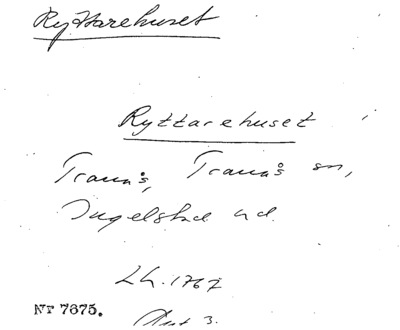 Ryttarehuset
Ryttarehuset
Tranås, Tranås sn,
Ingelstad hd.
LH. 1767
Nr 7675.
Akt 3.